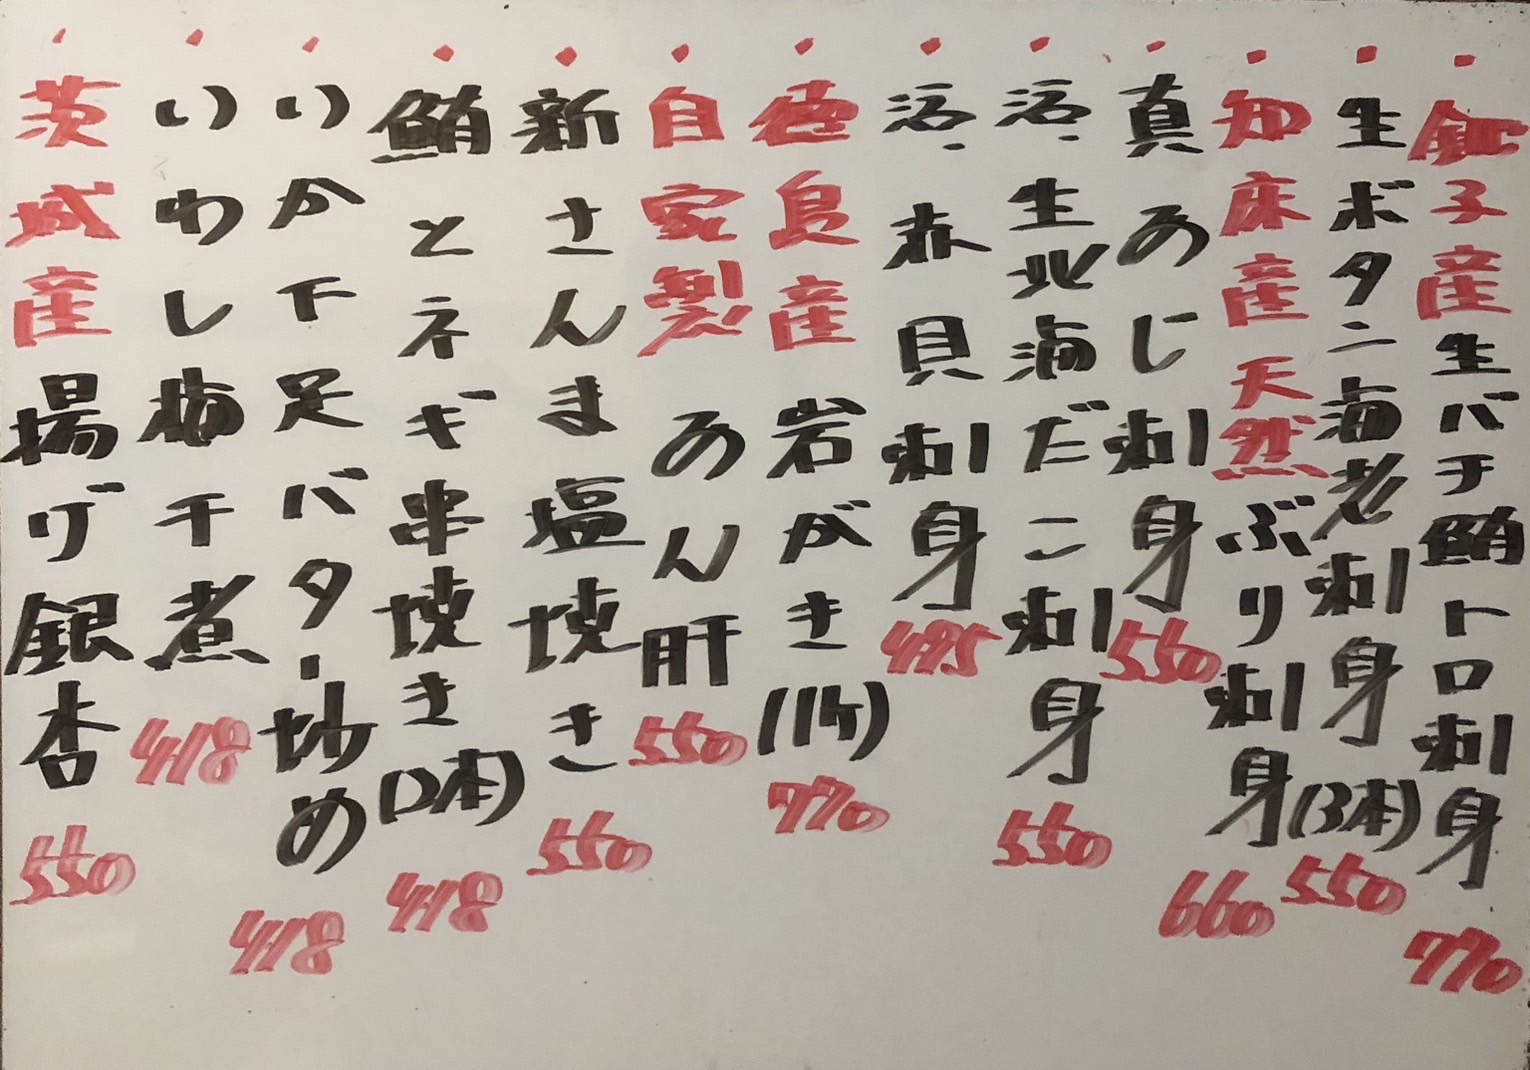 ・銚子産生バチ鮪トロ刺身 770
・生ボタン海老刺身(3本) 550
・知床産天然ぶり刺身 660
・真あじ刺身 550
・活、生北海だこ刺身 550
・活、赤貝刺身 495
・徳島産岩がき(1ケ) 770
・自家製あん肝 550
・新さんま塩焼き 550
・鮪とネギ串焼き(2本) 418
・いか下足バター炒め 418
・いわし梅干煮 418
・茨城産揚げ銀杏 550